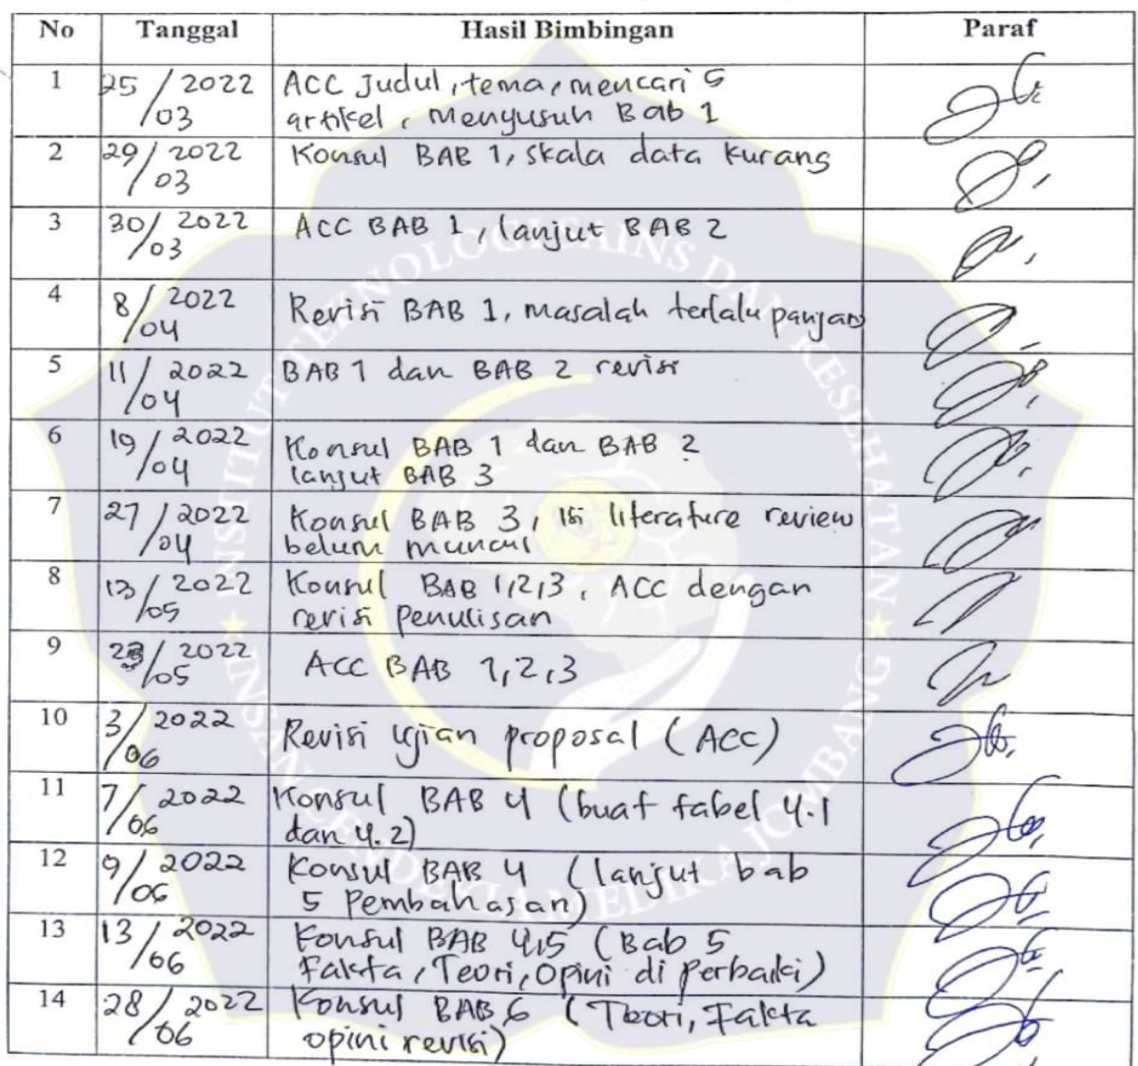 No Tanggal Hasil Bimbingan Paraf
1 25/03 2022 ACC Judul, tema, mencari 5
artikel, Menyusun Bab 1
2 29/03 2022 Konsul BAB 1, skala data kurang
3 30/03 2022 ACC BAB 1, lanjut BAB 2
4 8/04 2022 Revisi BAB 1, masalah terlalu panjang
5 11/04 2022 BAB 1 dan BAB 2 revisi
6 19/04 2022 Konsul BAB 1 dan BAB 2
lanjut BAB 3
7 27/04 2022 Konsul BAB 3, isi literature review
belum muncul
8 13/05 2022 Konsul BAB 1,2,3, ACC dengan
revisi Penulisan
9 /05 2022 ACC BAB 1,2,3
10 3/06 2022 Revisi ujian proposal (ACC)
11 7/06 2022 Konsul BAB 4 (buat tabel 4.1
dan 4.2)
12 9/06 2022 Konsul BAB 4 (lanjut bab
5 Pembahasan)
13 13/06 2022 Konsul BAB 4,5 (Bab 5
Fakta, Teori, Opini di Perbaiki)
14 28/06 2022 Konsul BAB 6 (Teori, Fakta
opini revisi)
INSTITUT TEKNOLOGI SAINS DAN KESEHATAN
INSAN CENDEKIA MEDIKA JOMBANG